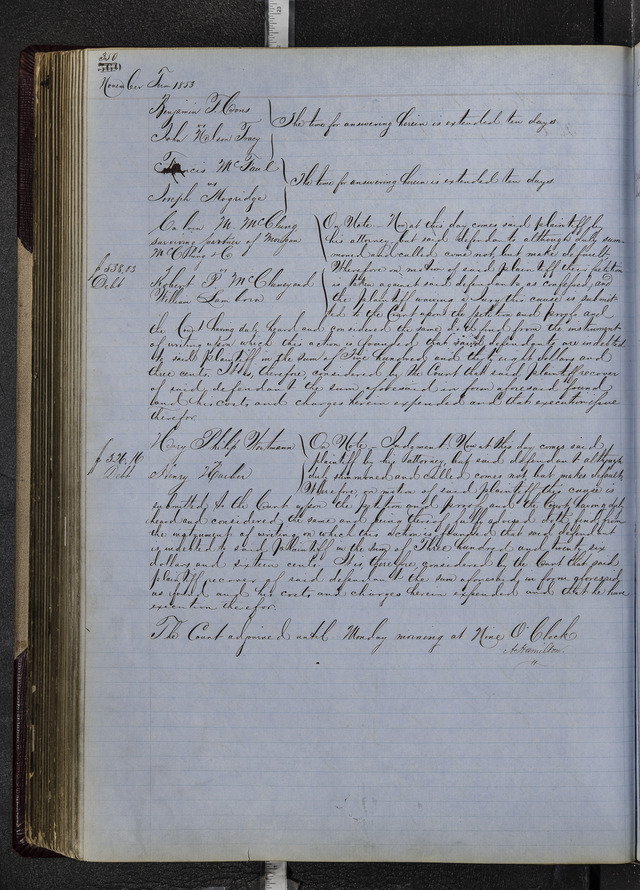 350
November Term 1853
Benjamin F Evans
vs
John Nelson
The time for answering herein is extended ten days.
Francis McFaul
vs
Joseph Mogridge
The time for answering herein is extended ten days
Calvin M. McClung
surviving partner of Morgan
McClung & Co
Robert P McClaney and
William Lamborn
$538,03
Debt
On Note. Now at this day comes said plaintiff by
his attorney, but said defendants although duly sum-
moned and called come not, but make default,
Wherefore on motion of said plaintiff the petition
is taken against said defendants as confessed, and
the plaintiff waiving a jury this cause is submit-
ted to the Court upon the petition and proofs and
the Court being duly heard and considered the same doth find from the instrument
of writing upon which this action is founded that said defendants are indebted
to said plaintiff in the sum of Five hundred and thirty eight dollars and
three cents. It is therefore considered by the Court that said plaintiff recover
of said defendants the sum aforesaid in form aforesaid found
and his costs and charges herein expended and that execution issue
therefor.
Henry Philip
vs
Henry Harber
$326,16
Debt
On Note - Judgment. Now at this day comes said
plaintiff by his attorney, but said defendant although
duly summoned and called comes not, but makes default,
Wherefore on motion of said plaintiff this cause is
submitted to the Court upon the petition and proofs and the Court having duly
heard and considered the same and being therein fully advised doth find from
the instrument of writing on which this action is founded that said defendant
is indebted to said plaintiff in the sum of Three hundred and twenty six
dollars and sixteen cents. It is therefore considered by the Court that said
plaintiff recover of said defendant the sum aforesaid in form aforesaid
as found and his costs and charges herein expended and that he have
execution therefor.
The Court adjourned until Monday morning at Nine O'Clock
A Hamilton